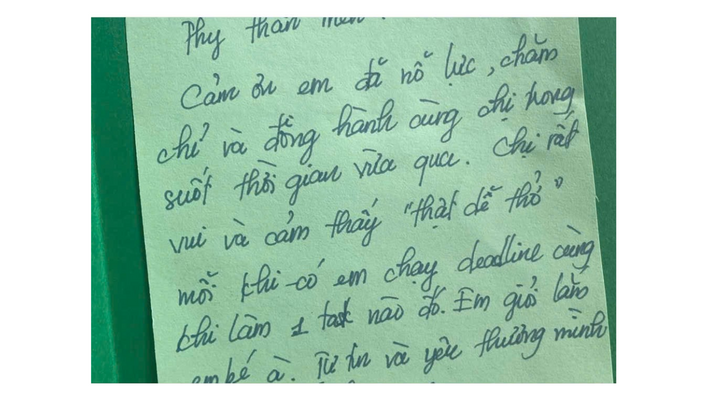 Thy thân mến
Cảm ơn em đã nỗ lực, chăm
chỉ và đồng hành cùng chị trong
suốt thời gian vừa qua. Chị rất
vui và cảm thấy "thật dễ thở"
mỗi khi có em chạy deadline cùng
khi làm 1 task nào đó. Em giỏi lắm
embé à. Tự tin và yêu thương mình